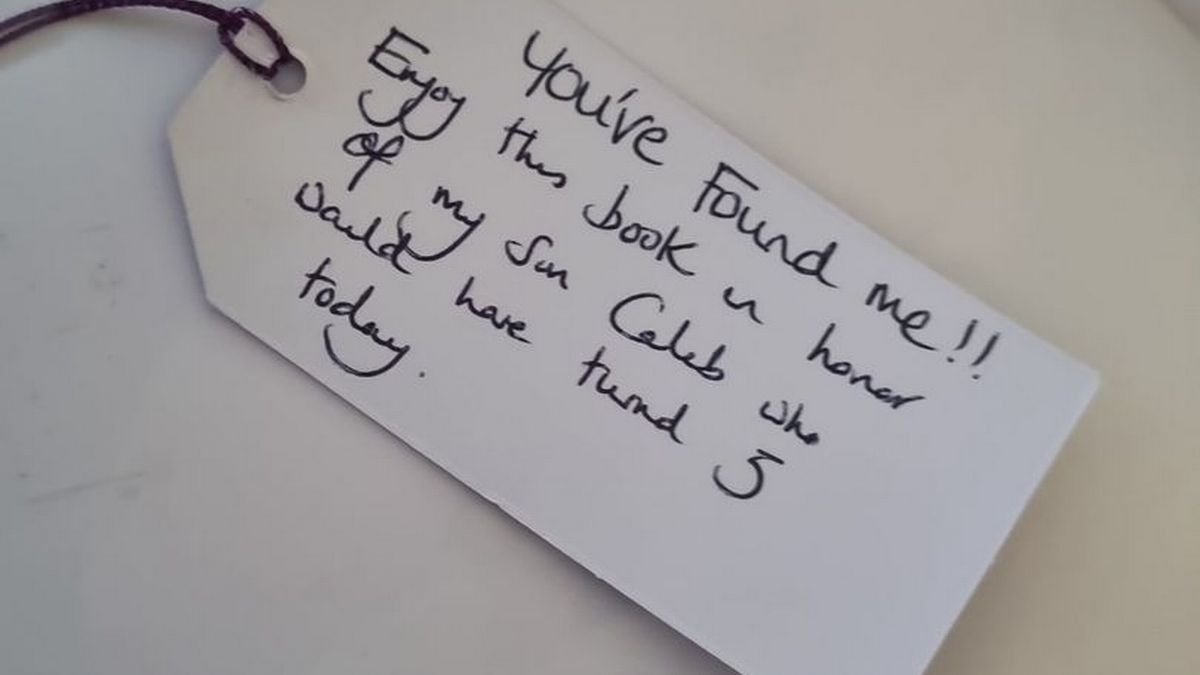 You've Found me!!
Enjoy this book in honor
of my Son Caleb who
would have turned 5
today.